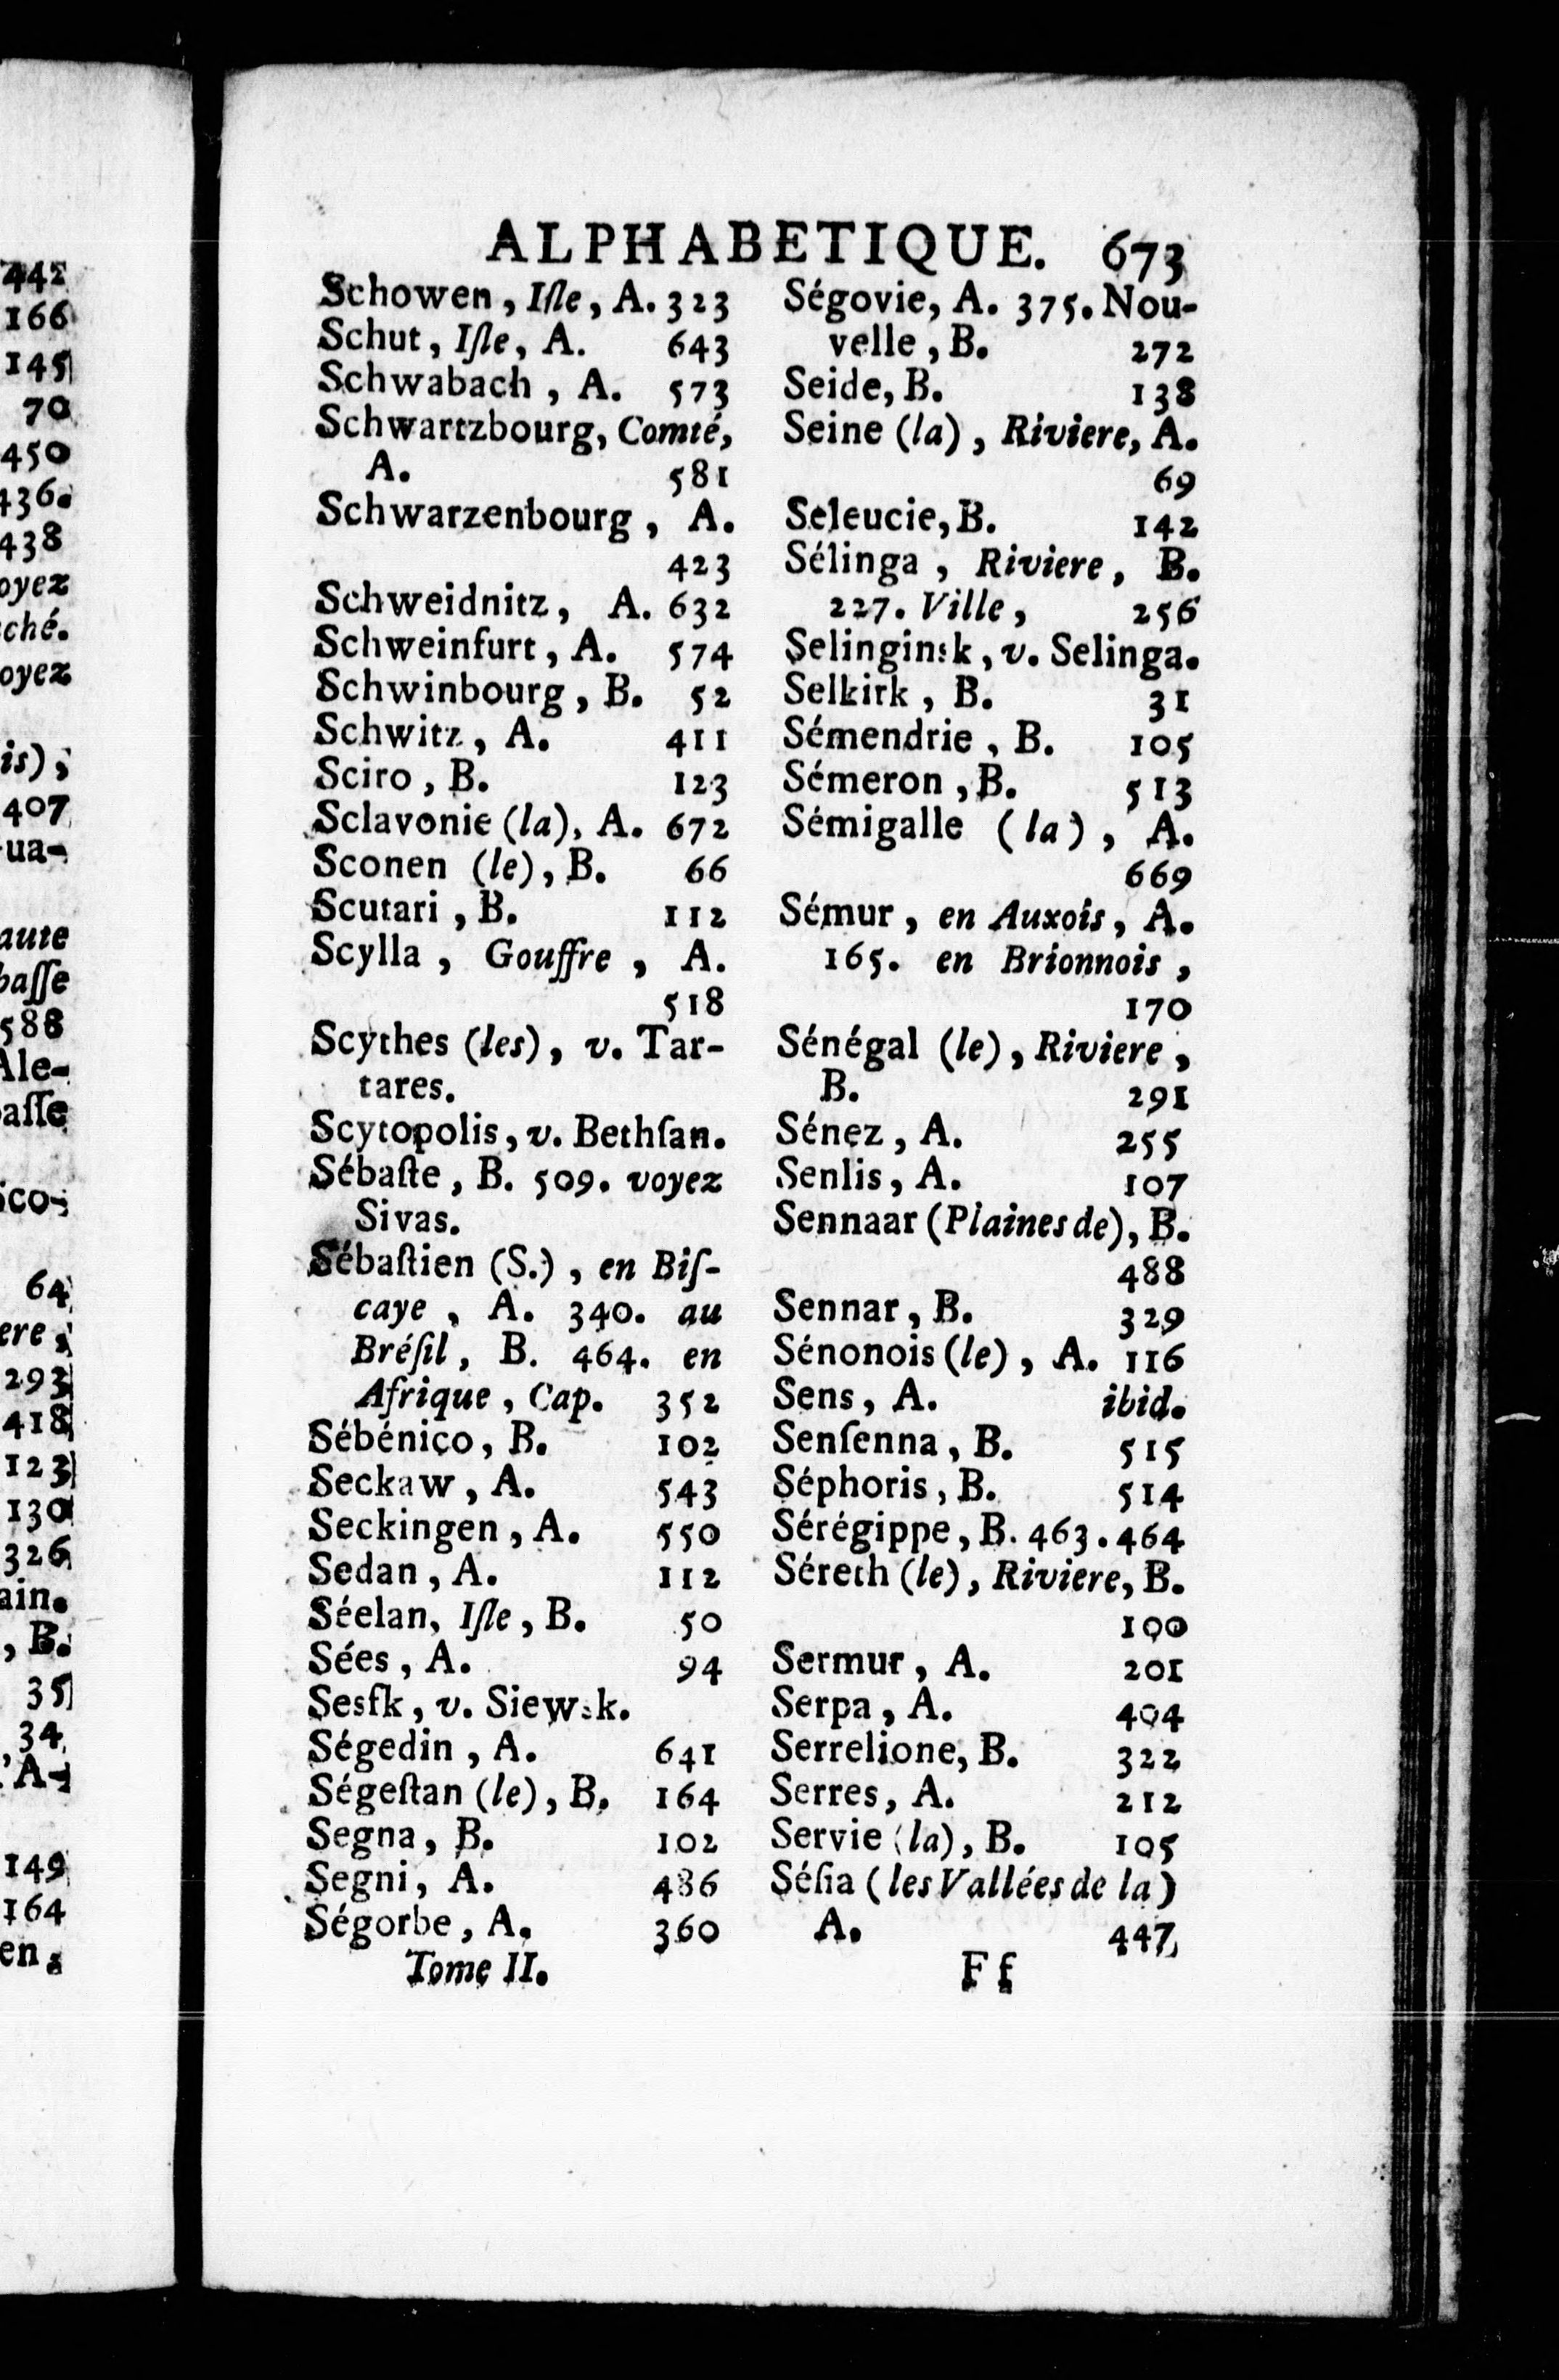 442
166
145
70
450
436.
438
oyez
ché.
oyez
is),
407
ua-
aute
basse
588
Ale-
basse
ico-
64
ere,
293
418
123
130
326
ain.
, B.
35
34
'A-
149
164
en,
ALPHABETIQUE. 673
Schowen, Isle, A. 323
Schut, Isle, A. 643
Schwabach, A. 573
Schwartzbourg, Comté,
A. 581
Schwarzenbourg, A.
423
Schweidnitz, A. 632
Schweinfurt, A. 574
Schwinbourg, B. 52
Schwitz, A. 411
Sciro, B. 123
Sclavonie (la), A. 672
Sconen (le), B. 66
Scutari, B. 112
Scylla, Gouffre, A.
518
Scythes (les), v. Tar-
tares.
Scytopolis, v. Bethſan.
Sébaſte, B. 509. voyez
Sivas.
Sébaſtien (S.), en Biſ-
caye, A. 340. au
Bréſil, B. 464. en
Afrique, Cap. 352
Sébénico, B. 102
Seckaw, A. 543
Seckingen, A. 550
Sedan, A. 112
Séelan, Iſle, B. 50
Sées, A. 94
Sesſk, v. Siewsk.
Ségedin, A. 641
Ségeſtan (le), B. 164
Segna, B. 102
Segni, A. 486
Ségorbe, A. 360
Tome II.
Ségovie, A. 375. Nou-
velle, B. 272
Seide, B. 138
Seine (la), Riviere, A.
69
Seleucie, B. 142
Sélinga, Riviere, B.
227. Ville, 256
Selinginsk, v. Selinga.
Selkirk, B. 31
Sémendrie, B. 105
Sémeron, B. 513
Sémigalle (la), A.
669
Sémur, en Auxois, A.
165. en Brionnois,
170
Sénégal (le), Riviere,
B. 291
Sénez, A. 255
Senlis, A. 107
Sennaar (Plaines de), B.
488
Sennar, B. 329
Sénonois (le), A. 116
Sens, A. ibid.
Senſenna, B. 515
Séphoris, B. 514
Sérégippe, B. 463. 464
Séreth (le), Riviere, B.
100
Sermur, A. 201
Serpa, A. 404
Serrelione, B. 322
Serres, A. 212
Servie (la), B. 105
Séſia (les Vallées de la)
A. 447
Ff